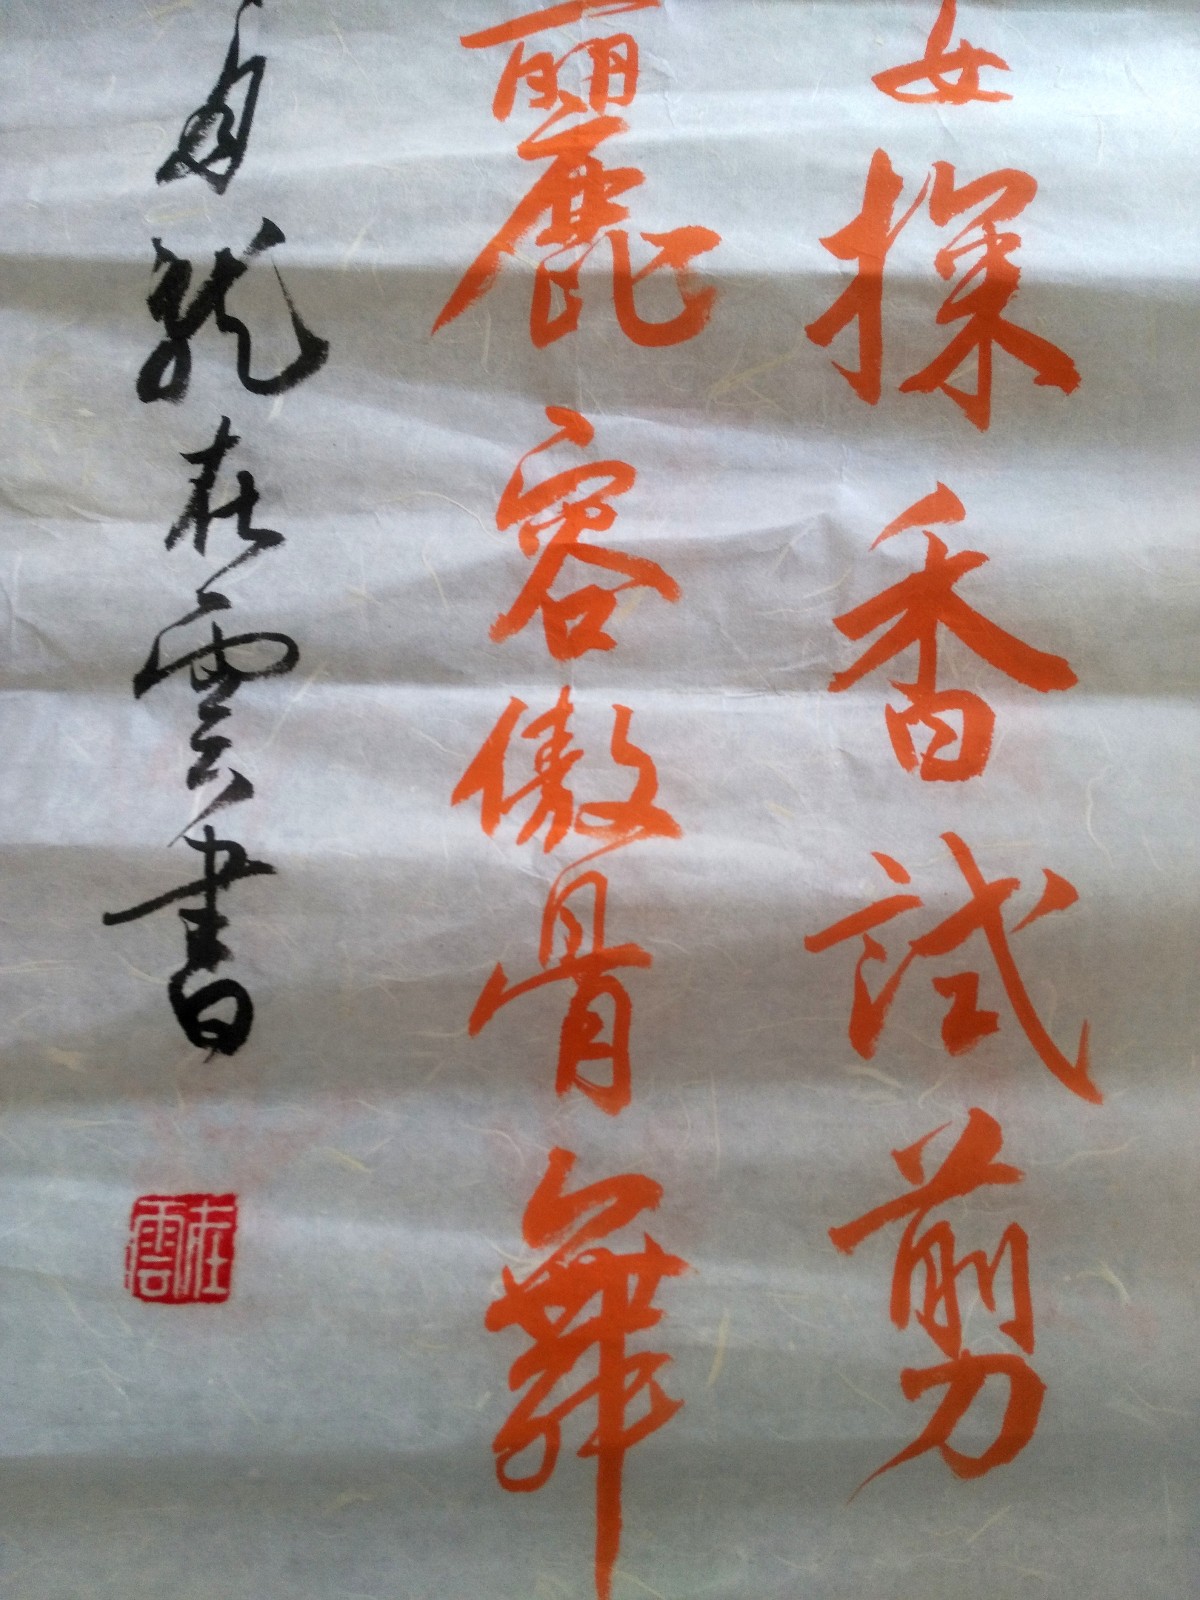 女探香試剪
麗容傲骨舞
龍在雲書
在雲